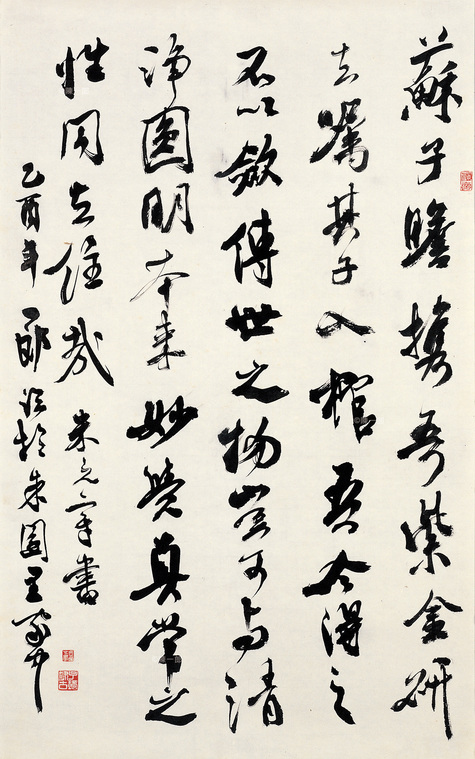 蘇子瞻携吾紫金研
去嘱其子入棺吾今得之
不以斂傳世之物豈可与清
淨圓明本来妙覺真常之
性同去住哉 米元章書
乙酉年 於朱園里家中